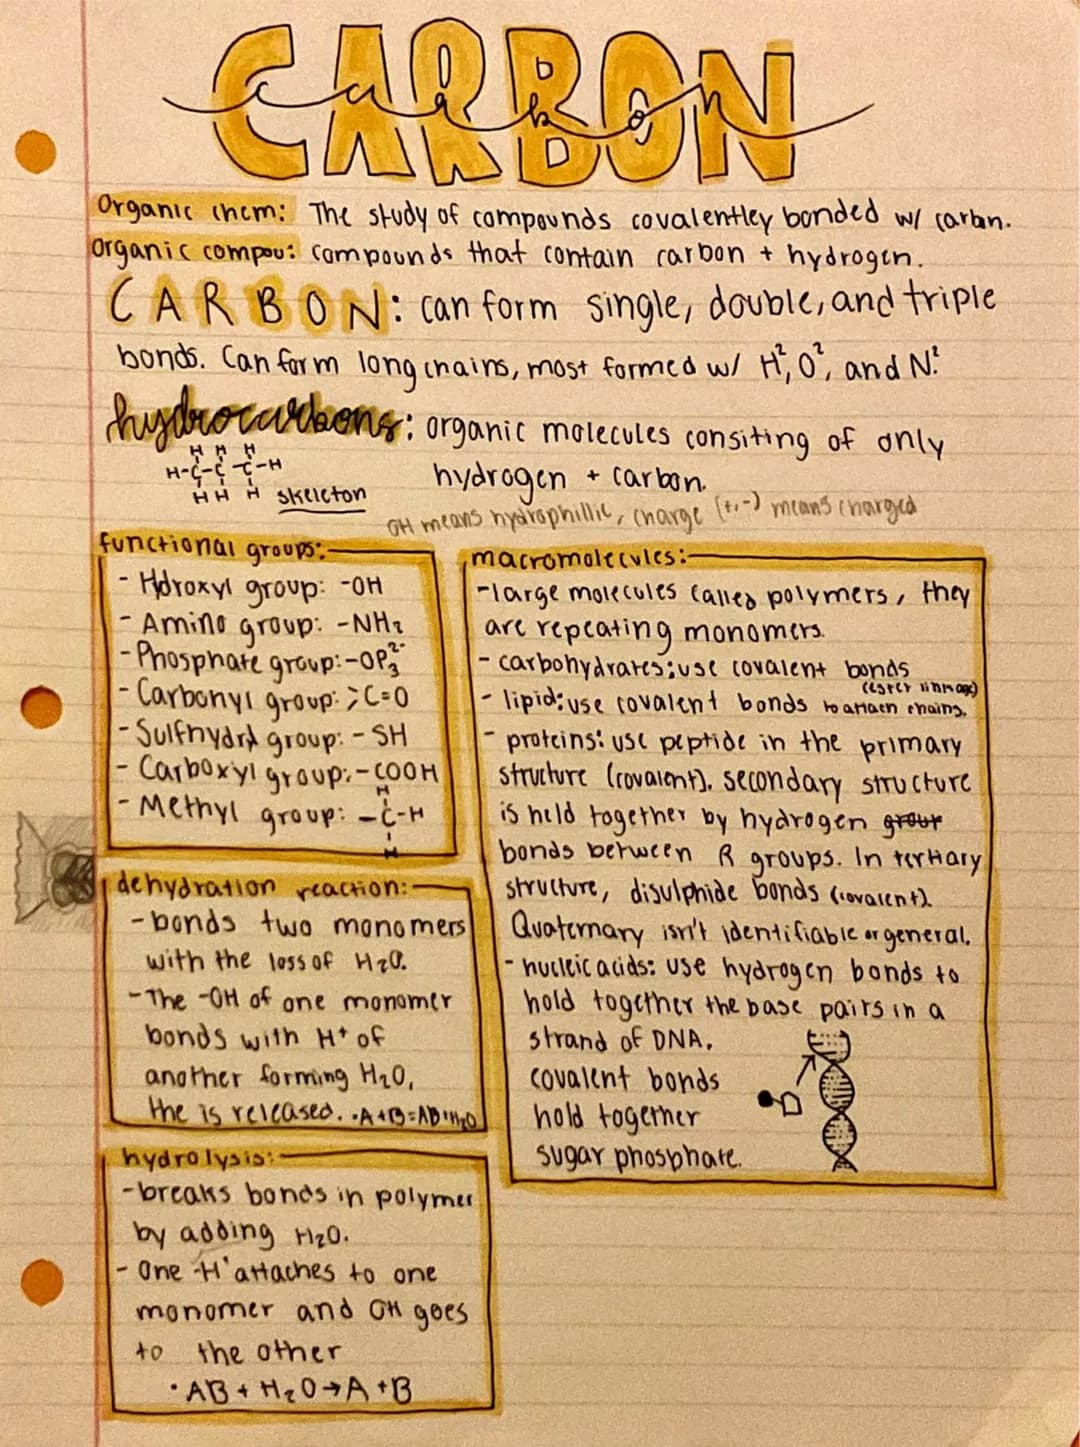 CARBON
carbon
Organic chem: The study of compounds covalentley bonded w/ carbon.
Organic compou: compounds that contain carbon + hydrogen.
CARBON: can form single, double, and triple
bonds. Can form long chains, most formed w/ H², O², and N².
hydrocarbons: organic molecules consiting of only
hydrogen + carbon.
H H H
H-C-C-C-H
H H H skeleton
OH means hydrophillic, charge (+,-) means charged
functional groups:
- Hdroxyl group: -OH
- Amino group: -NH₂
- Phosphate group: -OP₃²⁻
- Carbonyl group: >C=O
- Sulfhydryl group: -SH
- Carboxyl group: -COOH
- Methyl group: -C-H
H
H
dehydration reaction:
- bonds two monomers
with the loss of H₂O.
- The -OH of one monomer
bonds with H⁺ of
another forming H₂O,
the is released. •A+B=AB+H₂O
hydrolysis:
- breaks bonds in polymer
by adding H₂O.
- One -H⁺ attaches to one
monomer and OH goes
to the other
• AB + H₂O→A+B
macromolecules:
- large molecules called polymers, they
are repeating monomers.
- carbohydrates: use covalent bonds
(ester linkage)
- lipid: use covalent bonds to attach chains.
- proteins: use peptide in the primary
structure (covalent). secondary structure
is held together by hydrogen group
bonds between R groups. In tertiary
structure, disulphide bonds (covalent).
Quaternary isn't identifiable or general.
- nucleic acids: use hydrogen bonds to
hold together the base pairs in a
strand of DNA.
covalent bonds
hold together
sugar phosphate.